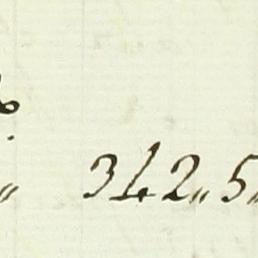 „ 342„ 5„